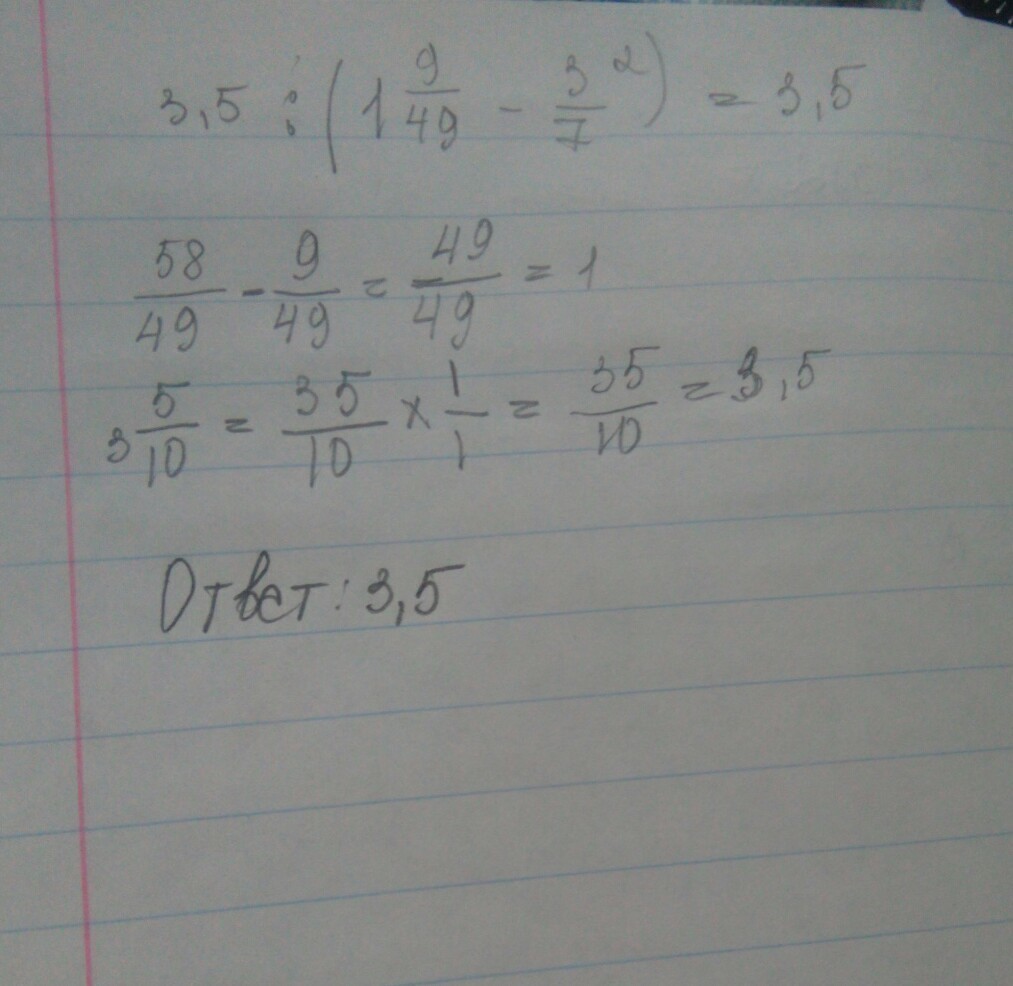 3,5 : (1 9/49 - 3/7 ²) = 3,5
58/49 - 9/49 = 49/49 = 1
3 5/10 = 35/10 × 1/1 = 35/10 = 3,5
Ответ: 3,5